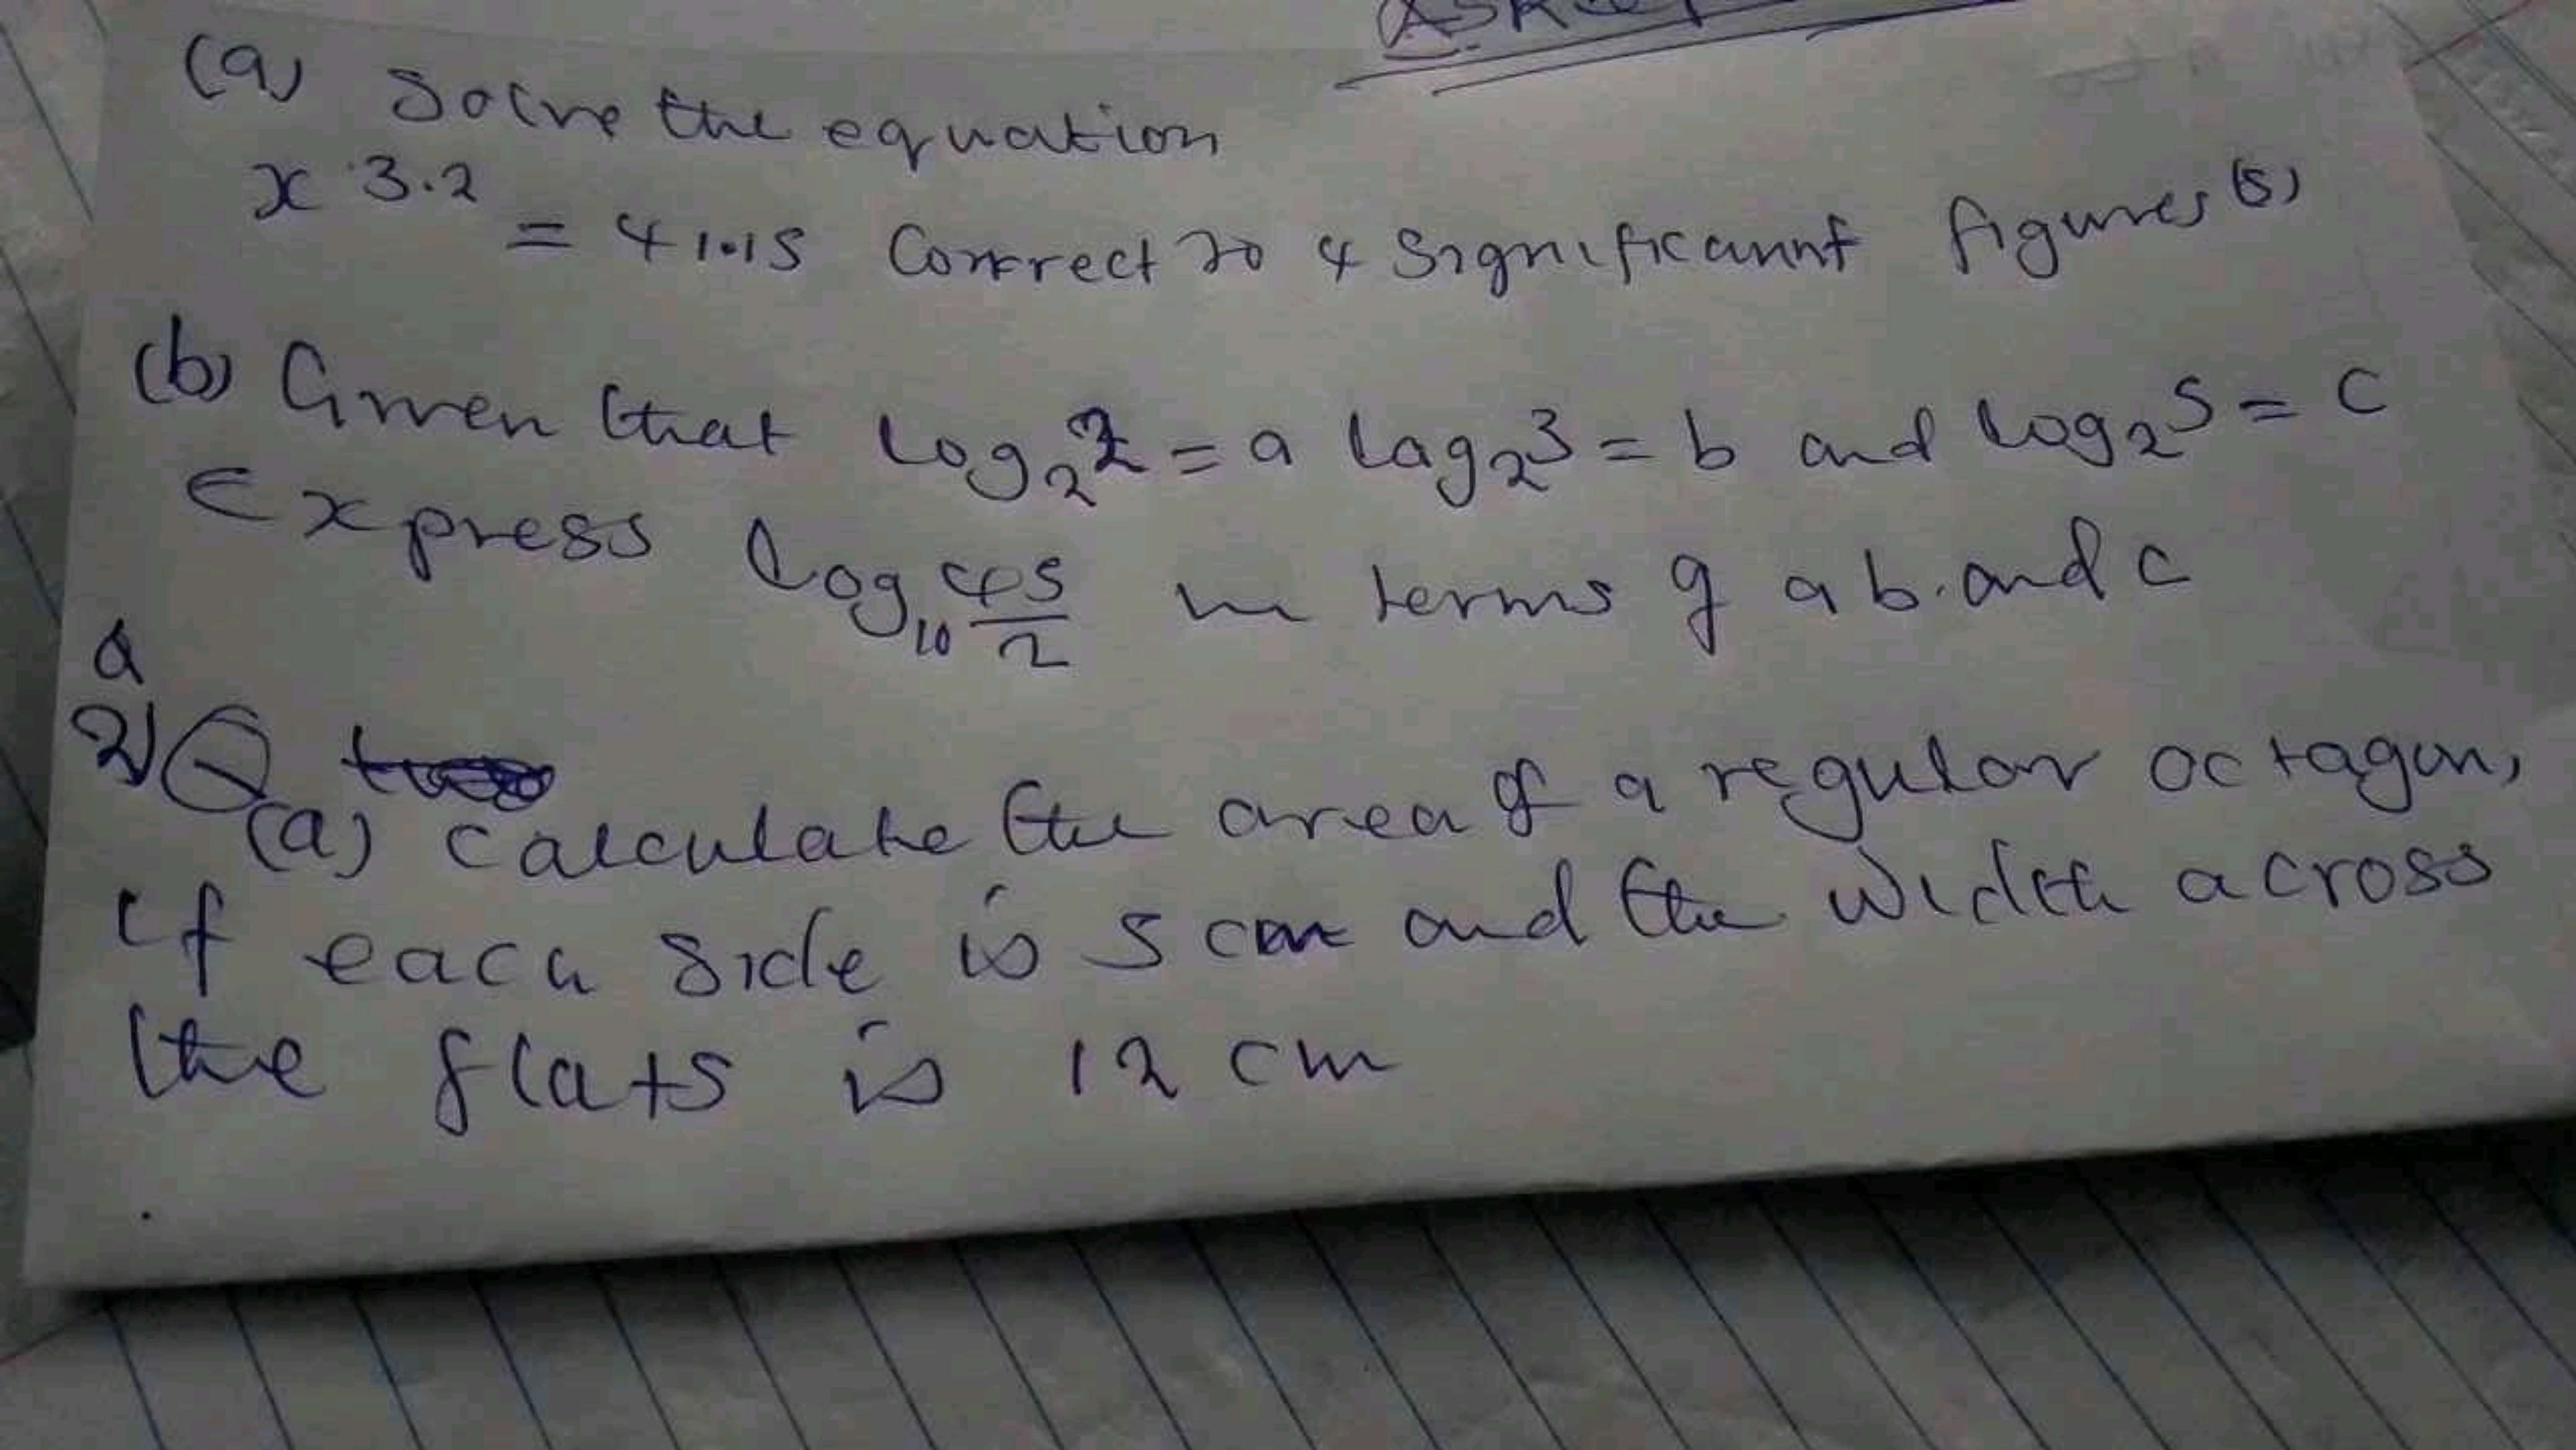 (a) Solve the equation
x 3.2
= 41.15 Correct to 4 Significannt figures (s)
(b) Given that log₂2 = a lag₂3 = b and log₂5 = c
Express log₁₀ 45/2 in terms of a b. and c
Q
2) Q
(a) Calculate the area of a regular octagon,
if each side is 5 cm and the width across
the flats is 12 cm